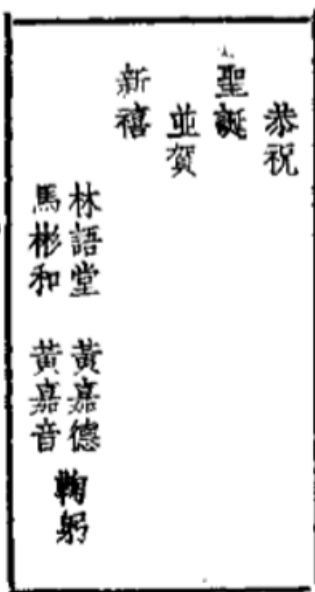 恭祝
聖誕
並賀
新禧
林語堂 黃嘉德
馬彬和 黃嘉音
鞠躬